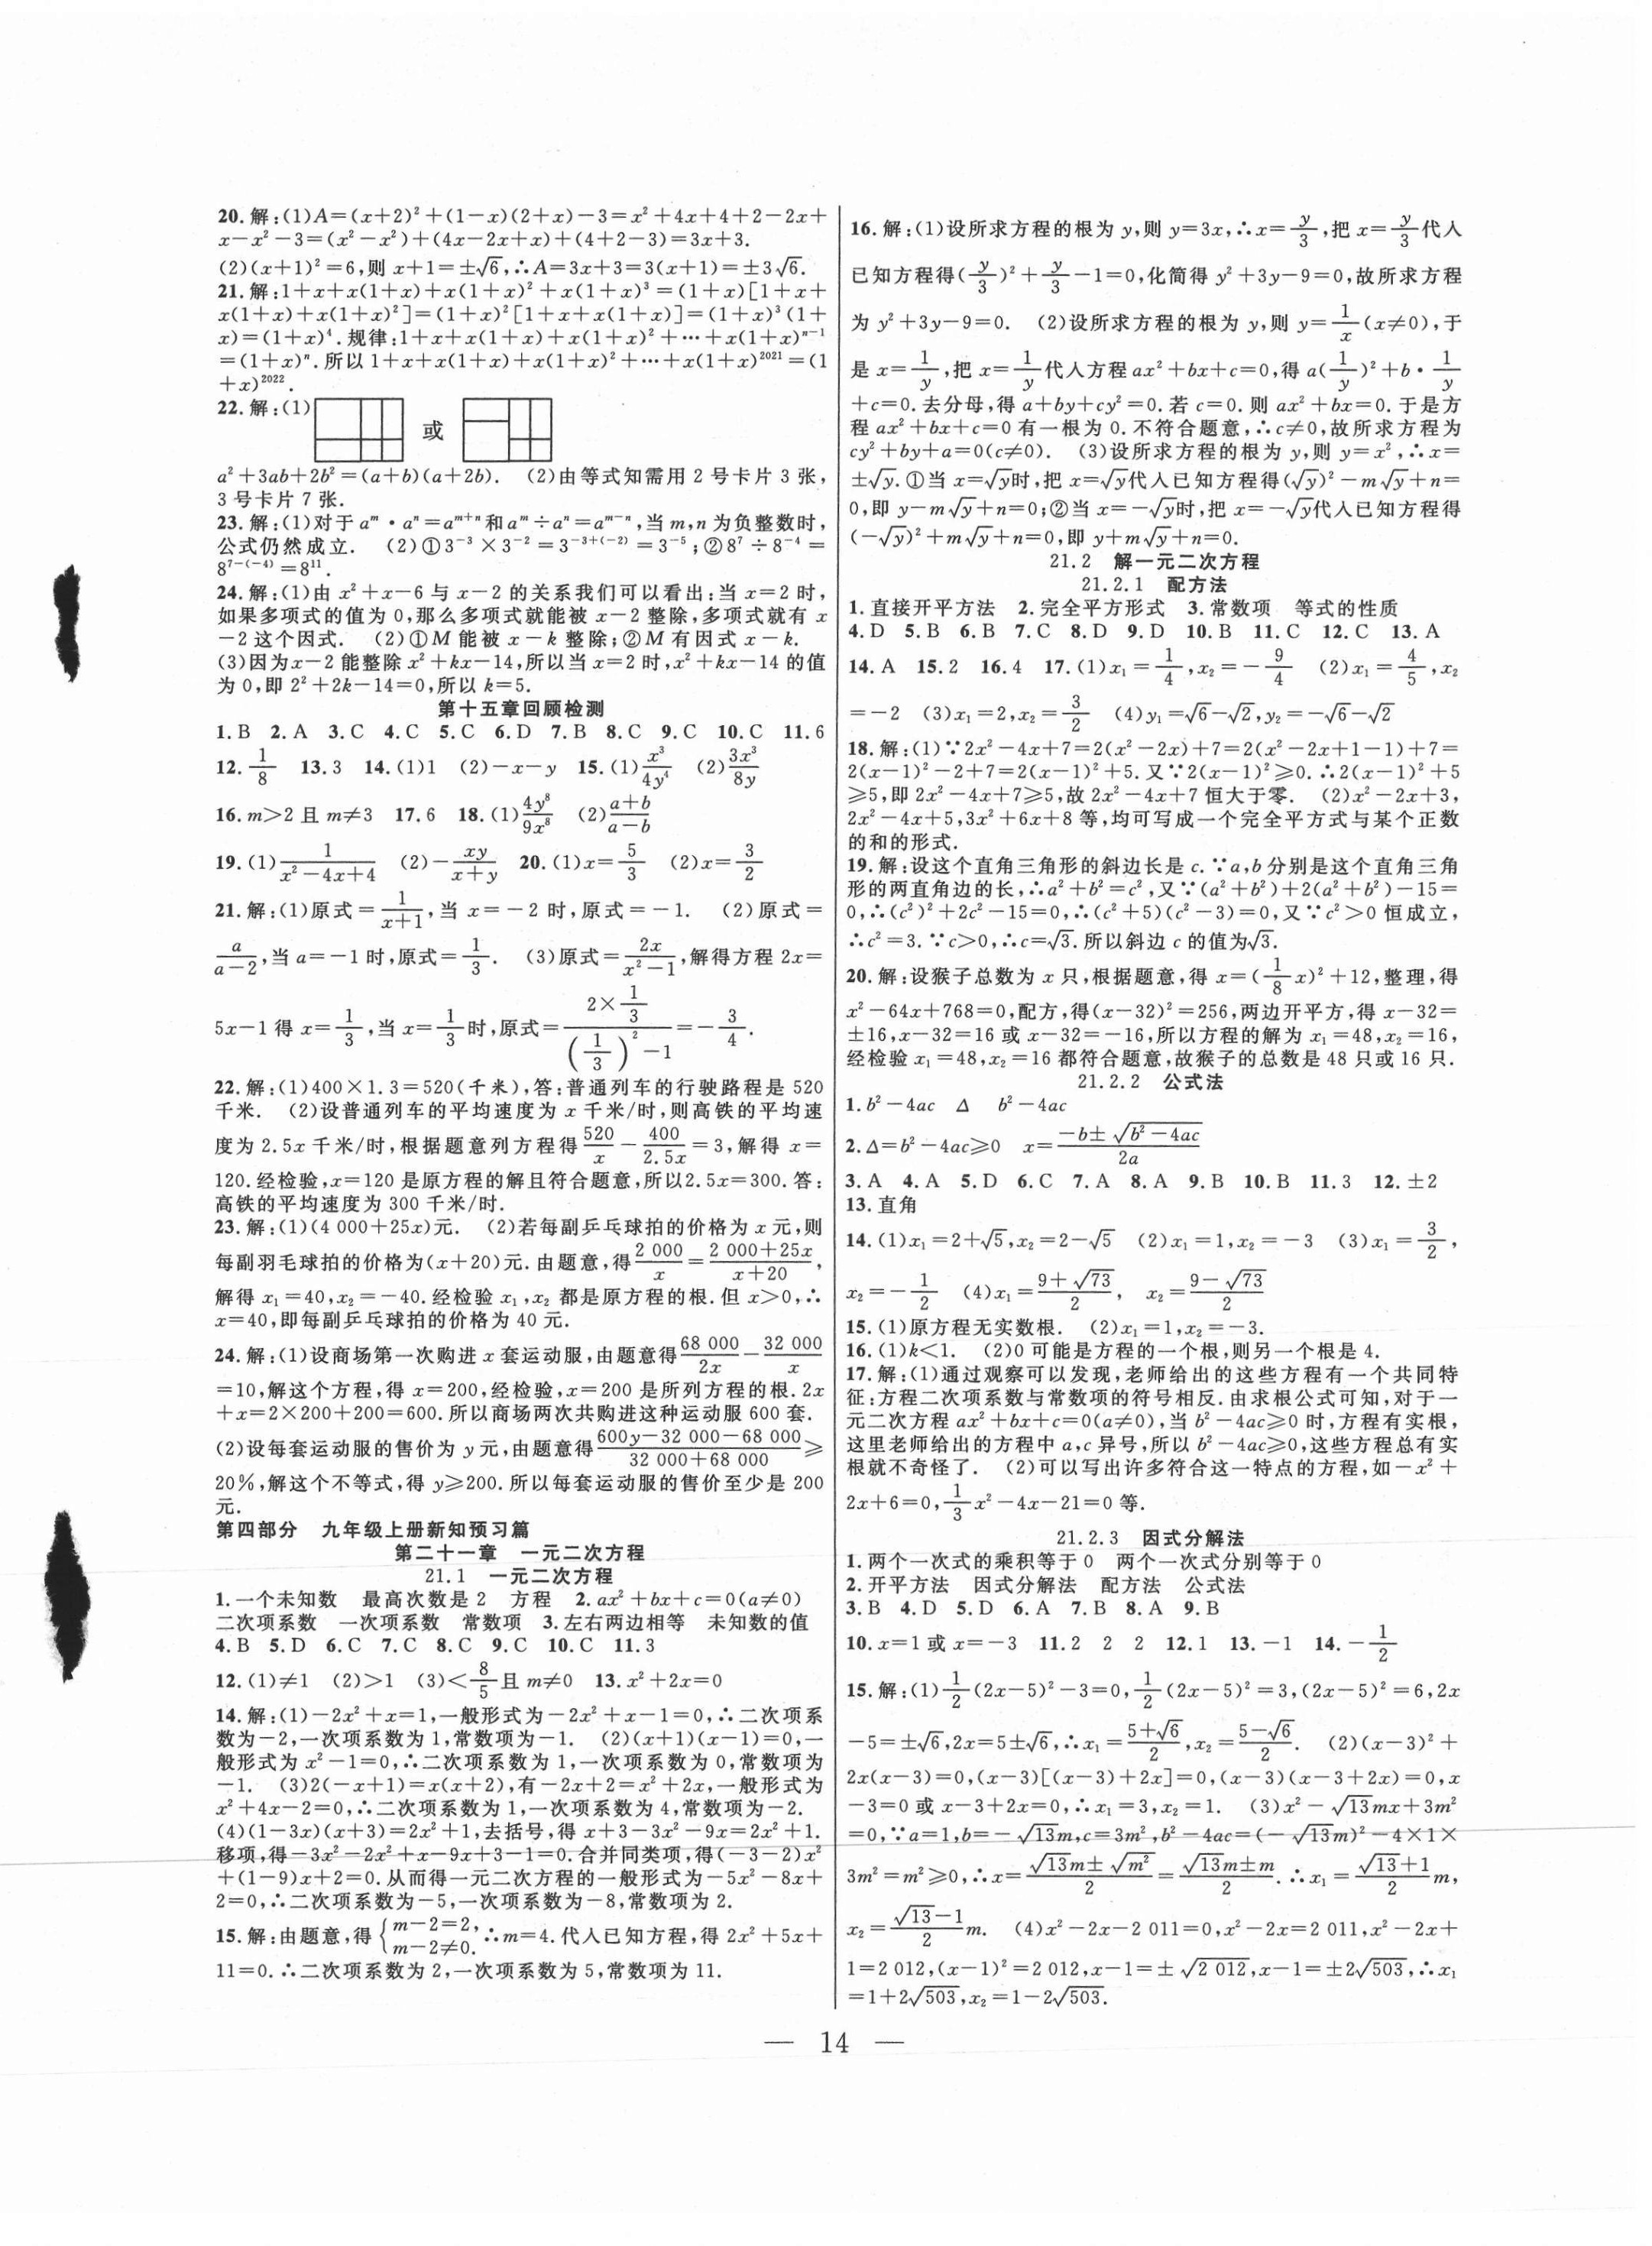 20.解:(1)A=(x+2)²+(1-x)(2+x)-3=x²+4x+4+2-2x+
x-x²-3=(x²-x²)+(4x-2x+x)+(4+2-3)=3x+3.
(2)(x+1)²=6,则 x+1=±√6,∴A=3x+3=3(x+1)=±3√6.
21.解:1+x+x(1+x)+x(1+x)²+x(1+x)³=(1+x)[1+x+
x(1+x)+x(1+x)²]=(1+x)²[1+x+x(1+x)]=(1+x)³(1+
x)=(1+x)⁴.规律:1+x+x(1+x)+x(1+x)²+…+x(1+x)ⁿ⁻¹
=(1+x)ⁿ.所以1+x+x(1+x)+x(1+x)²+…+x(1+x)²⁰²¹=(1
+x)²⁰²².
22.解:(1) 或
a²+3ab+2b²=(a+b)(a+2b). (2)由等式知需用2号卡片3张,
3号卡片7张.
23.解:(1)对于aᵐ·aⁿ=aᵐ⁺ⁿ和aᵐ÷aⁿ=aᵐ⁻ⁿ,当m,n为负整数时,
公式仍然成立. (2)①3⁻³×3⁻²=3⁻³⁺⁽⁻²⁾=3⁻⁵;②8⁷÷8⁻⁴=
8⁷⁻⁽⁻⁴⁾=8¹¹.
24.解:(1)由x²+x-6与x-2的关系我们可以看出:当x=2时,
如果多项式的值为0,那么多项式就能被x-2整除,多项式就有x
-2这个因式. (2)①M能被x-k整除;②M有因式x-k.
(3)因为x-2能整除x²+kx-14,所以当x=2时,x²+kx-14的值
为0,即2²+2k-14=0,所以k=5.
第十五章回顾检测
1.B 2.A 3.C 4.C 5.C 6.D 7.B 8.C 9.C 10.C 11.6
12.1/8 13.3 14.(1)1 (2)-x-y 15.(1)x³/4y⁴ (2)3x³/8y
16.m>2且m≠3 17.6 18.(1)4y⁸/9x⁸ (2)(a+b)/(a-b)
19.(1)1/(x²-4x+4) (2)-xy/(x+y) 20.(1)x=5/3 (2)x=3/2
21.解:(1)原式=1/(x+1),当x=-2时,原式=-1. (2)原式=
a/(a-2),当a=-1时,原式=1/3. (3)原式=2x/(x²-1),解得方程2x=
5x-1得x=1/3,当x=1/3时,原式=(2×1/3)/((1/3)²-1)=-3/4.
22.解:(1)400×1.3=520(千米),答:普通列车的行驶路程是520
千米. (2)设普通列车的平均速度为x千米/时,则高铁的平均速
度为2.5x千米/时,根据题意列方程得520/x-400/2.5x=3,解得x=
120.经检验,x=120是原方程的解且符合题意,所以2.5x=300.答:
高铁的平均速度为300千米/时.
23.解:(1)(4 000+25x)元. (2)若每副乒乓球拍的价格为x元,则
每副羽毛球拍的价格为(x+20)元.由题意,得2 000/x=(2 000+25x)/(x+20),
解得x₁=40,x₂=-40.经检验x₁,x₂都是原方程的根.但x>0,∴
x=40,即每副乒乓球拍的价格为40元.
24.解:(1)设商场第一次购进x套运动服,由题意得68 000/2x-32 000/x
=10,解这个方程,得x=200,经检验,x=200是所列方程的根.2x
+x=2×200+200=600.所以商场两次共购进这种运动服600套.
(2)设每套运动服的售价为y元,由题意得(600y-32 000-68 000)/(32 000+68 000)≥
20%,解这个不等式,得y≥200.所以每套运动服的售价至少是200
元.
第四部分 九年级上册新知预习篇
第二十一章 一元二次方程
21.1 一元二次方程
1.一个未知数 最高次数是2 方程 2.ax²+bx+c=0(a≠0)
二次项系数 一次项系数 常数项 3.左右两边相等 未知数的值
4.B 5.D 6.C 7.C 8.C 9.C 10.C 11.3
12.(1)≠1 (2)>1 (3)<8/5且m≠0 13.x²+2x=0
14.解:(1)-2x²+x=1,一般形式为-2x²+x-1=0,∴二次项系
数为-2,一次项系数为1,常数项为-1. (2)(x+1)(x-1)=0,一
般形式为x²-1=0,∴二次项系数为1,一次项系数为0,常数项为
-1. (3)2(-x+1)=x(x+2),有-2x+2=x²+2x,一般形式为
x²+4x-2=0,∴二次项系数为1,一次项系数为4,常数项为-2.
(4)(1-3x)(x+3)=2x²+1,去括号,得x+3-3x²-9x=2x²+1.
移项,得-3x²-2x²+x-9x+3-1=0.合并同类项,得(-3-2)x²
+(1-9)x+2=0.从而得一元二次方程的一般形式为-5x²-8x+
2=0,∴二次项系数为-5,一次项系数为-8,常数项为2.
15.解:由题意,得{m-2=2, m-2≠0. ∴m=4.代人已知方程,得2x²+5x+
11=0.∴二次项系数为2,一次项系数为5,常数项为11.
16.解:(1)设所求方程的根为y,则y=3x,∴x=y/3,把x=y/3代人
已知方程得(y/3)²+y/3-1=0,化简得y²+3y-9=0,故所求方程
为y²+3y-9=0. (2)设所求方程的根为y,则y=1/x(x≠0),于
是x=1/y,把x=1/y代人方程ax²+bx+c=0,得a(1/y)²+b·1/y
+c=0.去分母,得a+by+cy²=0.若c=0.则ax²+bx=0.于是方
程ax²+bx+c=0有一根为0.不符合题意,∴c≠0,故所求方程为
cy²+by+a=0(c≠0). (3)设所求方程的根为y,则y=x²,∴x=
±√y.①当x=√y时,把x=√y代人已知方程得(√y)²-m√y+n=
0,即y-m√y+n=0;②当x=-√y时,把x=-√y代人已知方程得
(-√y)²+m√y+n=0,即y+m√y+n=0.
21.2 解一元二次方程
21.2.1 配方法
1.直接开平方法 2.完全平方形式 3.常数项 等式的性质
4.D 5.B 6.B 7.C 8.D 9.D 10.B 11.C 12.C 13.A
14.A 15.2 16.4 17.(1)x₁=1/4,x₂=-9/4 (2)x₁=4/5,x₂
=-2 (3)x₁=2,x₂=3/2 (4)y₁=√6-√2,y₂=-√6-√2
18.解:(1)∵2x²-4x+7=2(x²-2x)+7=2(x²-2x+1-1)+7=
2(x-1)²-2+7=2(x-1)²+5.又∵2(x-1)²≥0.∴2(x-1)²+5
≥5,即2x²-4x+7≥5,故2x²-4x+7恒大于零. (2)x²-2x+3,
2x²-4x+5,3x²+6x+8等,均可写成一个完全平方式与某个正数
的和的形式.
19.解:设这个直角三角形的斜边长是c.∵a,b分别是这个直角三角
形的两直角边的长,∴a²+b²=c²,又∵(a²+b²)+2(a²+b²)-15=
0,∴(c²)²+2c²-15=0,∴(c²+5)(c²-3)=0,又∵c²>0恒成立,
∴c²=3.∵c>0,∴c=√3.所以斜边c的值为√3.
20.解:设猴子总数为x只,根据题意,得x=(1/8x)²+12,整理,得
x²-64x+768=0,配方,得(x-32)²=256,两边开平方,得x-32=
±16,x-32=16或x-32=-16,所以方程的解为x₁=48,x₂=16,
经检验x₁=48,x₂=16都符合题意,故猴子的总数是48只或16只.
21.2.2 公式法
1.b²-4ac Δ b²-4ac
2.Δ=b²-4ac≥0 x=(-b±√(b²-4ac))/2a
3.A 4.A 5.D 6.C 7.A 8.A 9.B 10.B 11.3 12.±2
13.直角
14.(1)x₁=2+√5,x₂=2-√5 (2)x₁=1,x₂=-3 (3)x₁=3/2,
x₂=-1/2 (4)x₁=(9+√73)/2, x₂=(9-√73)/2
15.(1)原方程无实数根. (2)x₁=1,x₂=-3.
16.(1)k<1. (2)0可能是方程的一个根,则另一个根是4.
17.解:(1)通过观察可以发现,老师给出的这些方程有一个共同特
征:方程二次项系数与常数项的符号相反.由求根公式可知,对于一
元二次方程ax²+bx+c=0(a≠0),当b²-4ac≥0时,方程有实根,
这里老师给出的方程中a,c异号,所以b²-4ac≥0,这些方程总有实
根就不奇怪了. (2)可以写出许多符合这一特点的方程,如-x²+
2x+6=0,1/3x²-4x-21=0等.
21.2.3 因式分解法
1.两个一次式的乘积等于0 两个一次式分别等于0
2.开平方法 因式分解法 配方法 公式法
3.B 4.D 5.D 6.A 7.B 8.A 9.B
10.x=1或x=-3 11.2 2 2 12.1 13.-1 14.-1/2
15.解:(1)1/2(2x-5)²-3=0,1/2(2x-5)²=3,(2x-5)²=6,2x
-5=±√6,2x=5±√6,∴x₁=(5+√6)/2,x₂=(5-√6)/2. (2)(x-3)²+
2x(x-3)=0,(x-3)[(x-3)+2x]=0,(x-3)(x-3+2x)=0,x
-3=0或x-3+2x=0,∴x₁=3,x₂=1. (3)x²-√13mx+3m²
=0,∵a=1,b=-√13m,c=3m²,b²-4ac=(-√13m)²-4×1×
3m²=m²≥0,∴x=(√13m±√m²)/2=(√13m±m)/2.∴x₁=(√13+1)/2 m,
x₂=(√13-1)/2 m. (4)x²-2x-2 011=0,x²-2x=2 011,x²-2x+
1=2 012,(x-1)²=2 012,x-1=±√2 012,x-1=±2√503,∴x₁
=1+2√503,x₂=1-2√503.
— 14 —